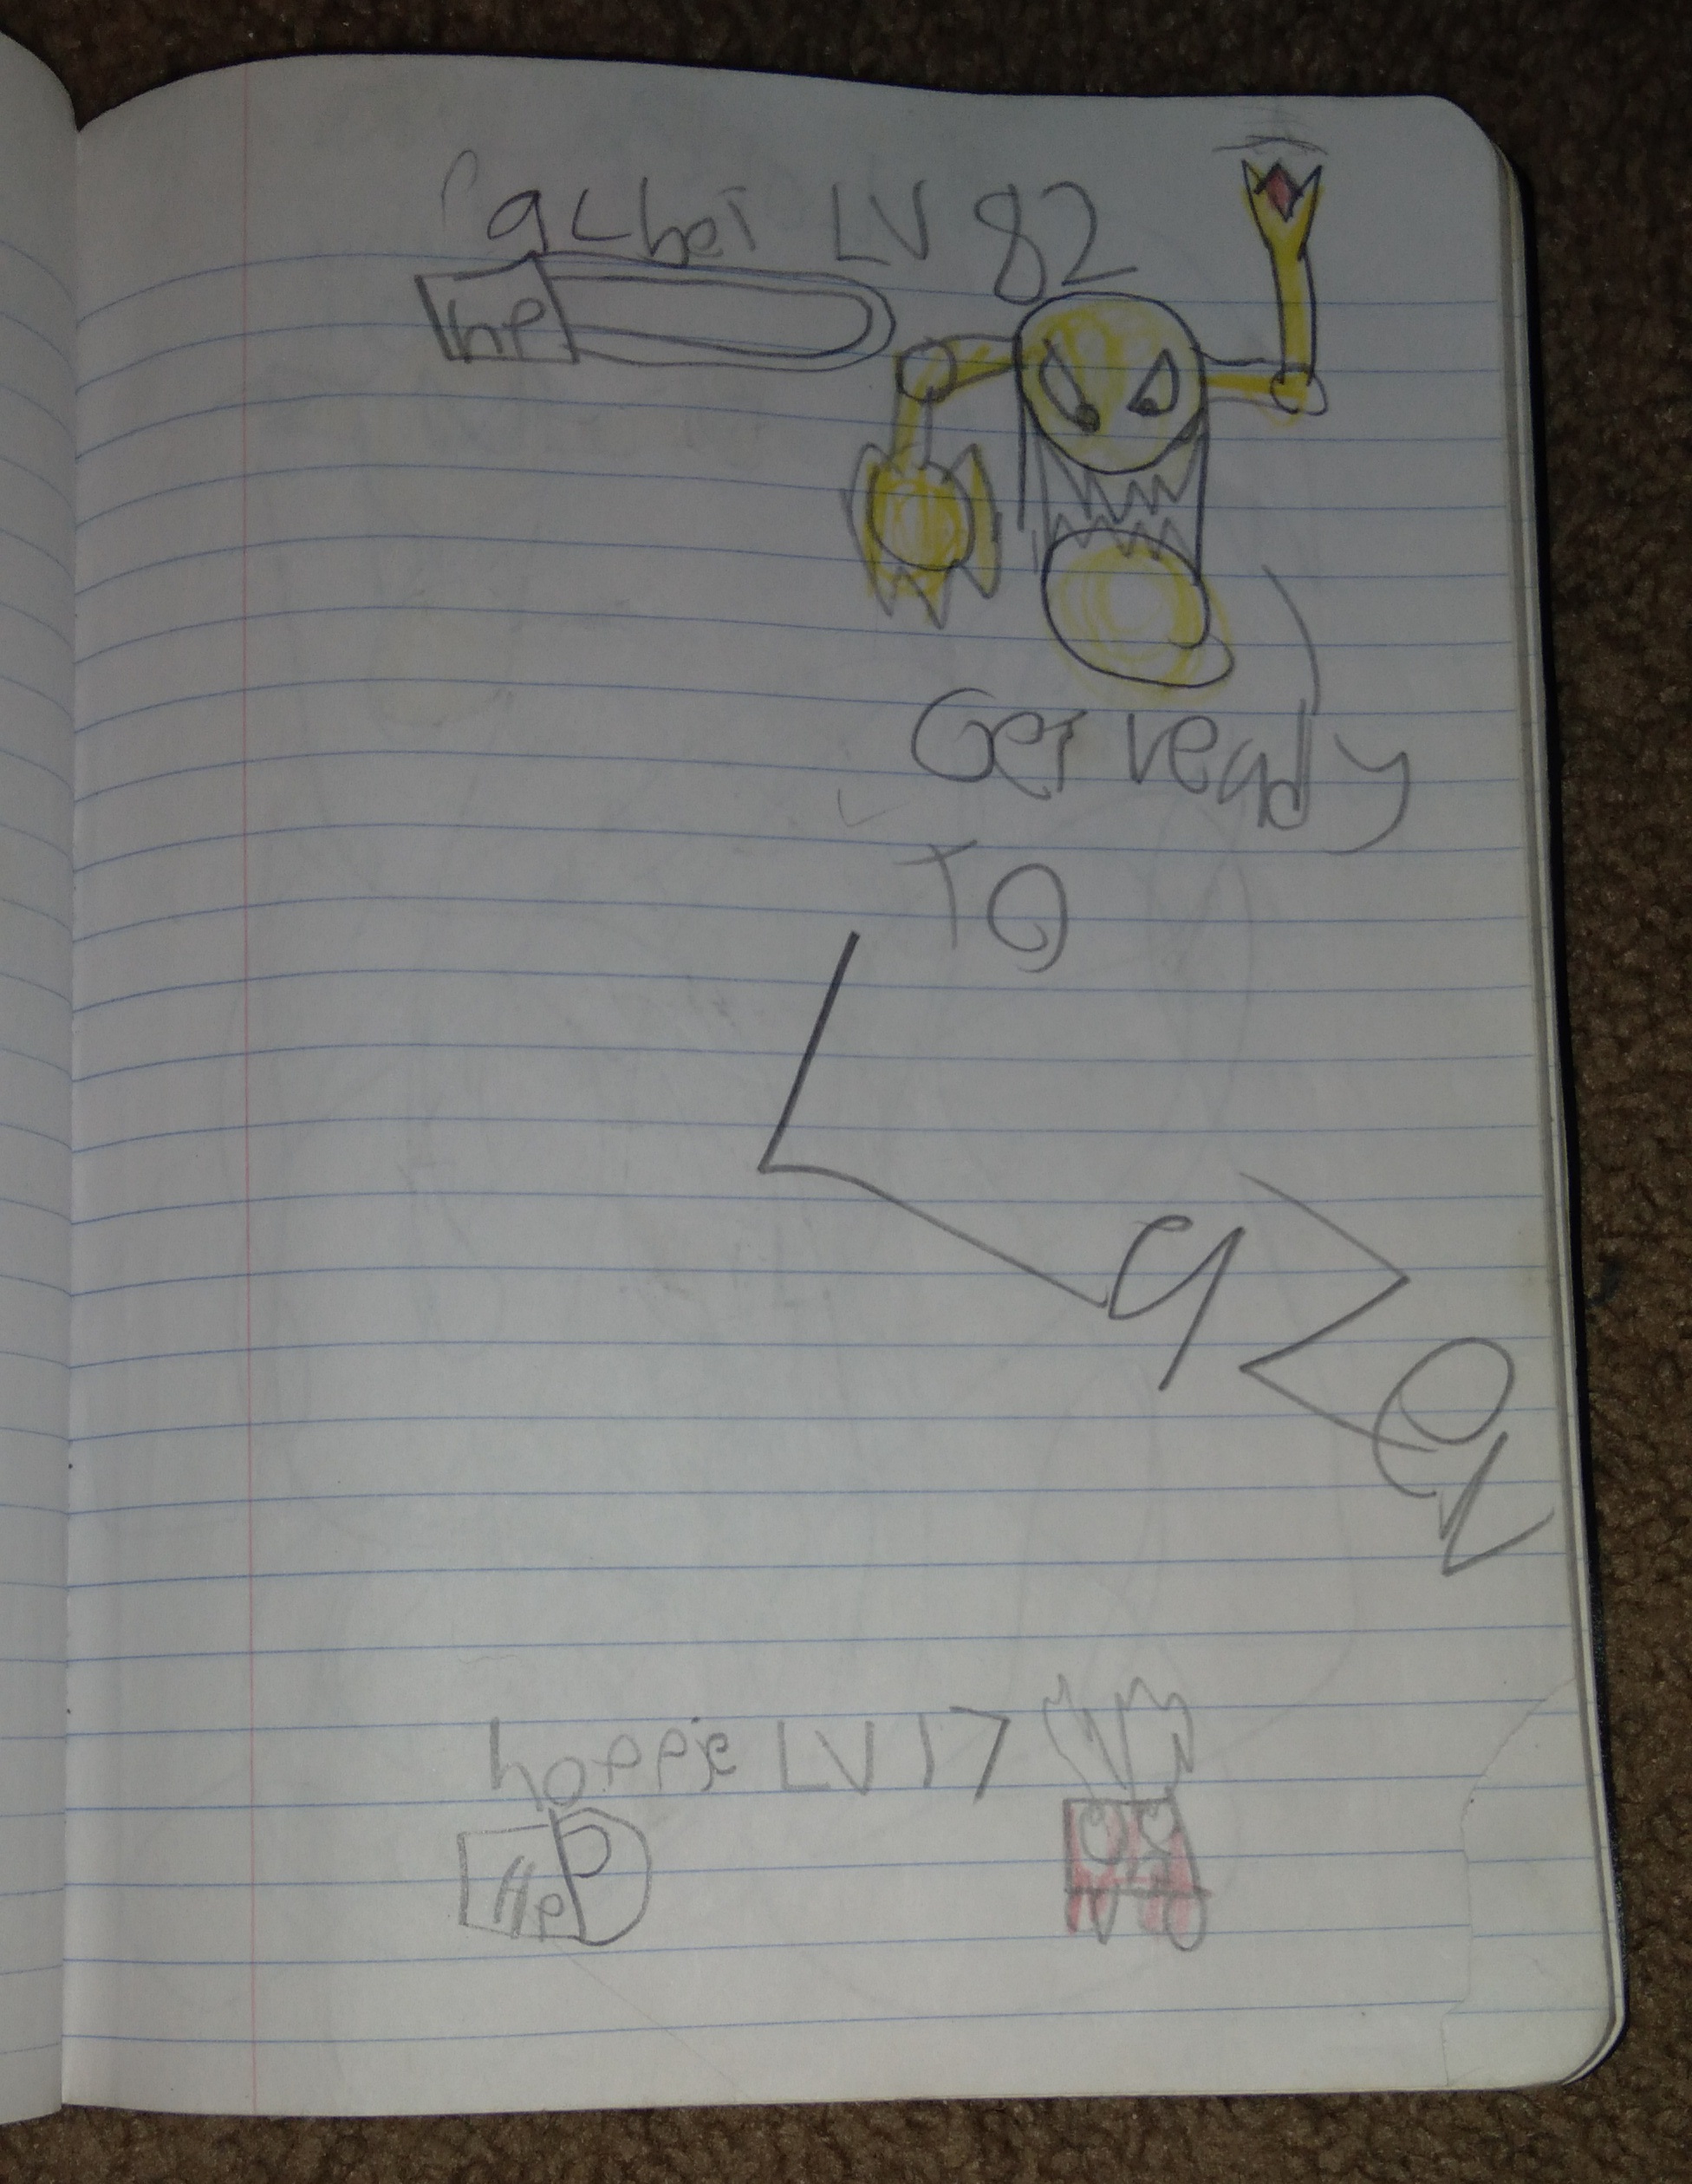 galbet LV 82
hp
Get ready
To
Lazer
hoppje LV 17
Hp